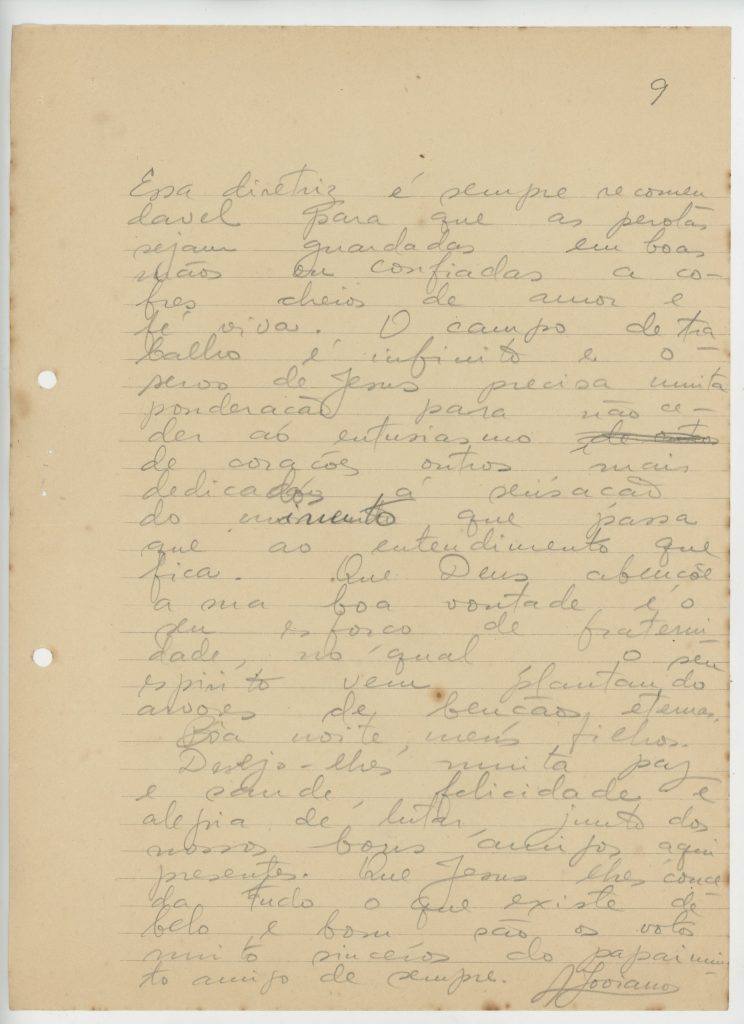 9
Essa diretriz é sempre recomen
davel para que as perolas
sejam guardadas em boas
mãos ou confiadas a co-
fres cheios de amor e
fé viva. O campo de tra
balho é infinito e o
servo de Jesus precisa muita
ponderação para não ce-
der ao entusiasmo de outros
de corações outros mais
dedicados á sensação
do momento que passa
que ao entendimento que
fica. Que Deus abençôe
a sua boa vontade e o
seu esforço de fraterni
dade, no qual o seu
espirito vem plantando
arvores de bençãos eternas.
Bôa noite, meus filhos.
Desejo-lhes muita paz
e saude, felicidade e
alegria de lutar junto dos
nossos bons amigos aqui
presentes. Que Jesus lhes conce
da tudo o que existe de
belo e bom são os votos
muito sinceros do papai mui
to amigo de sempre.